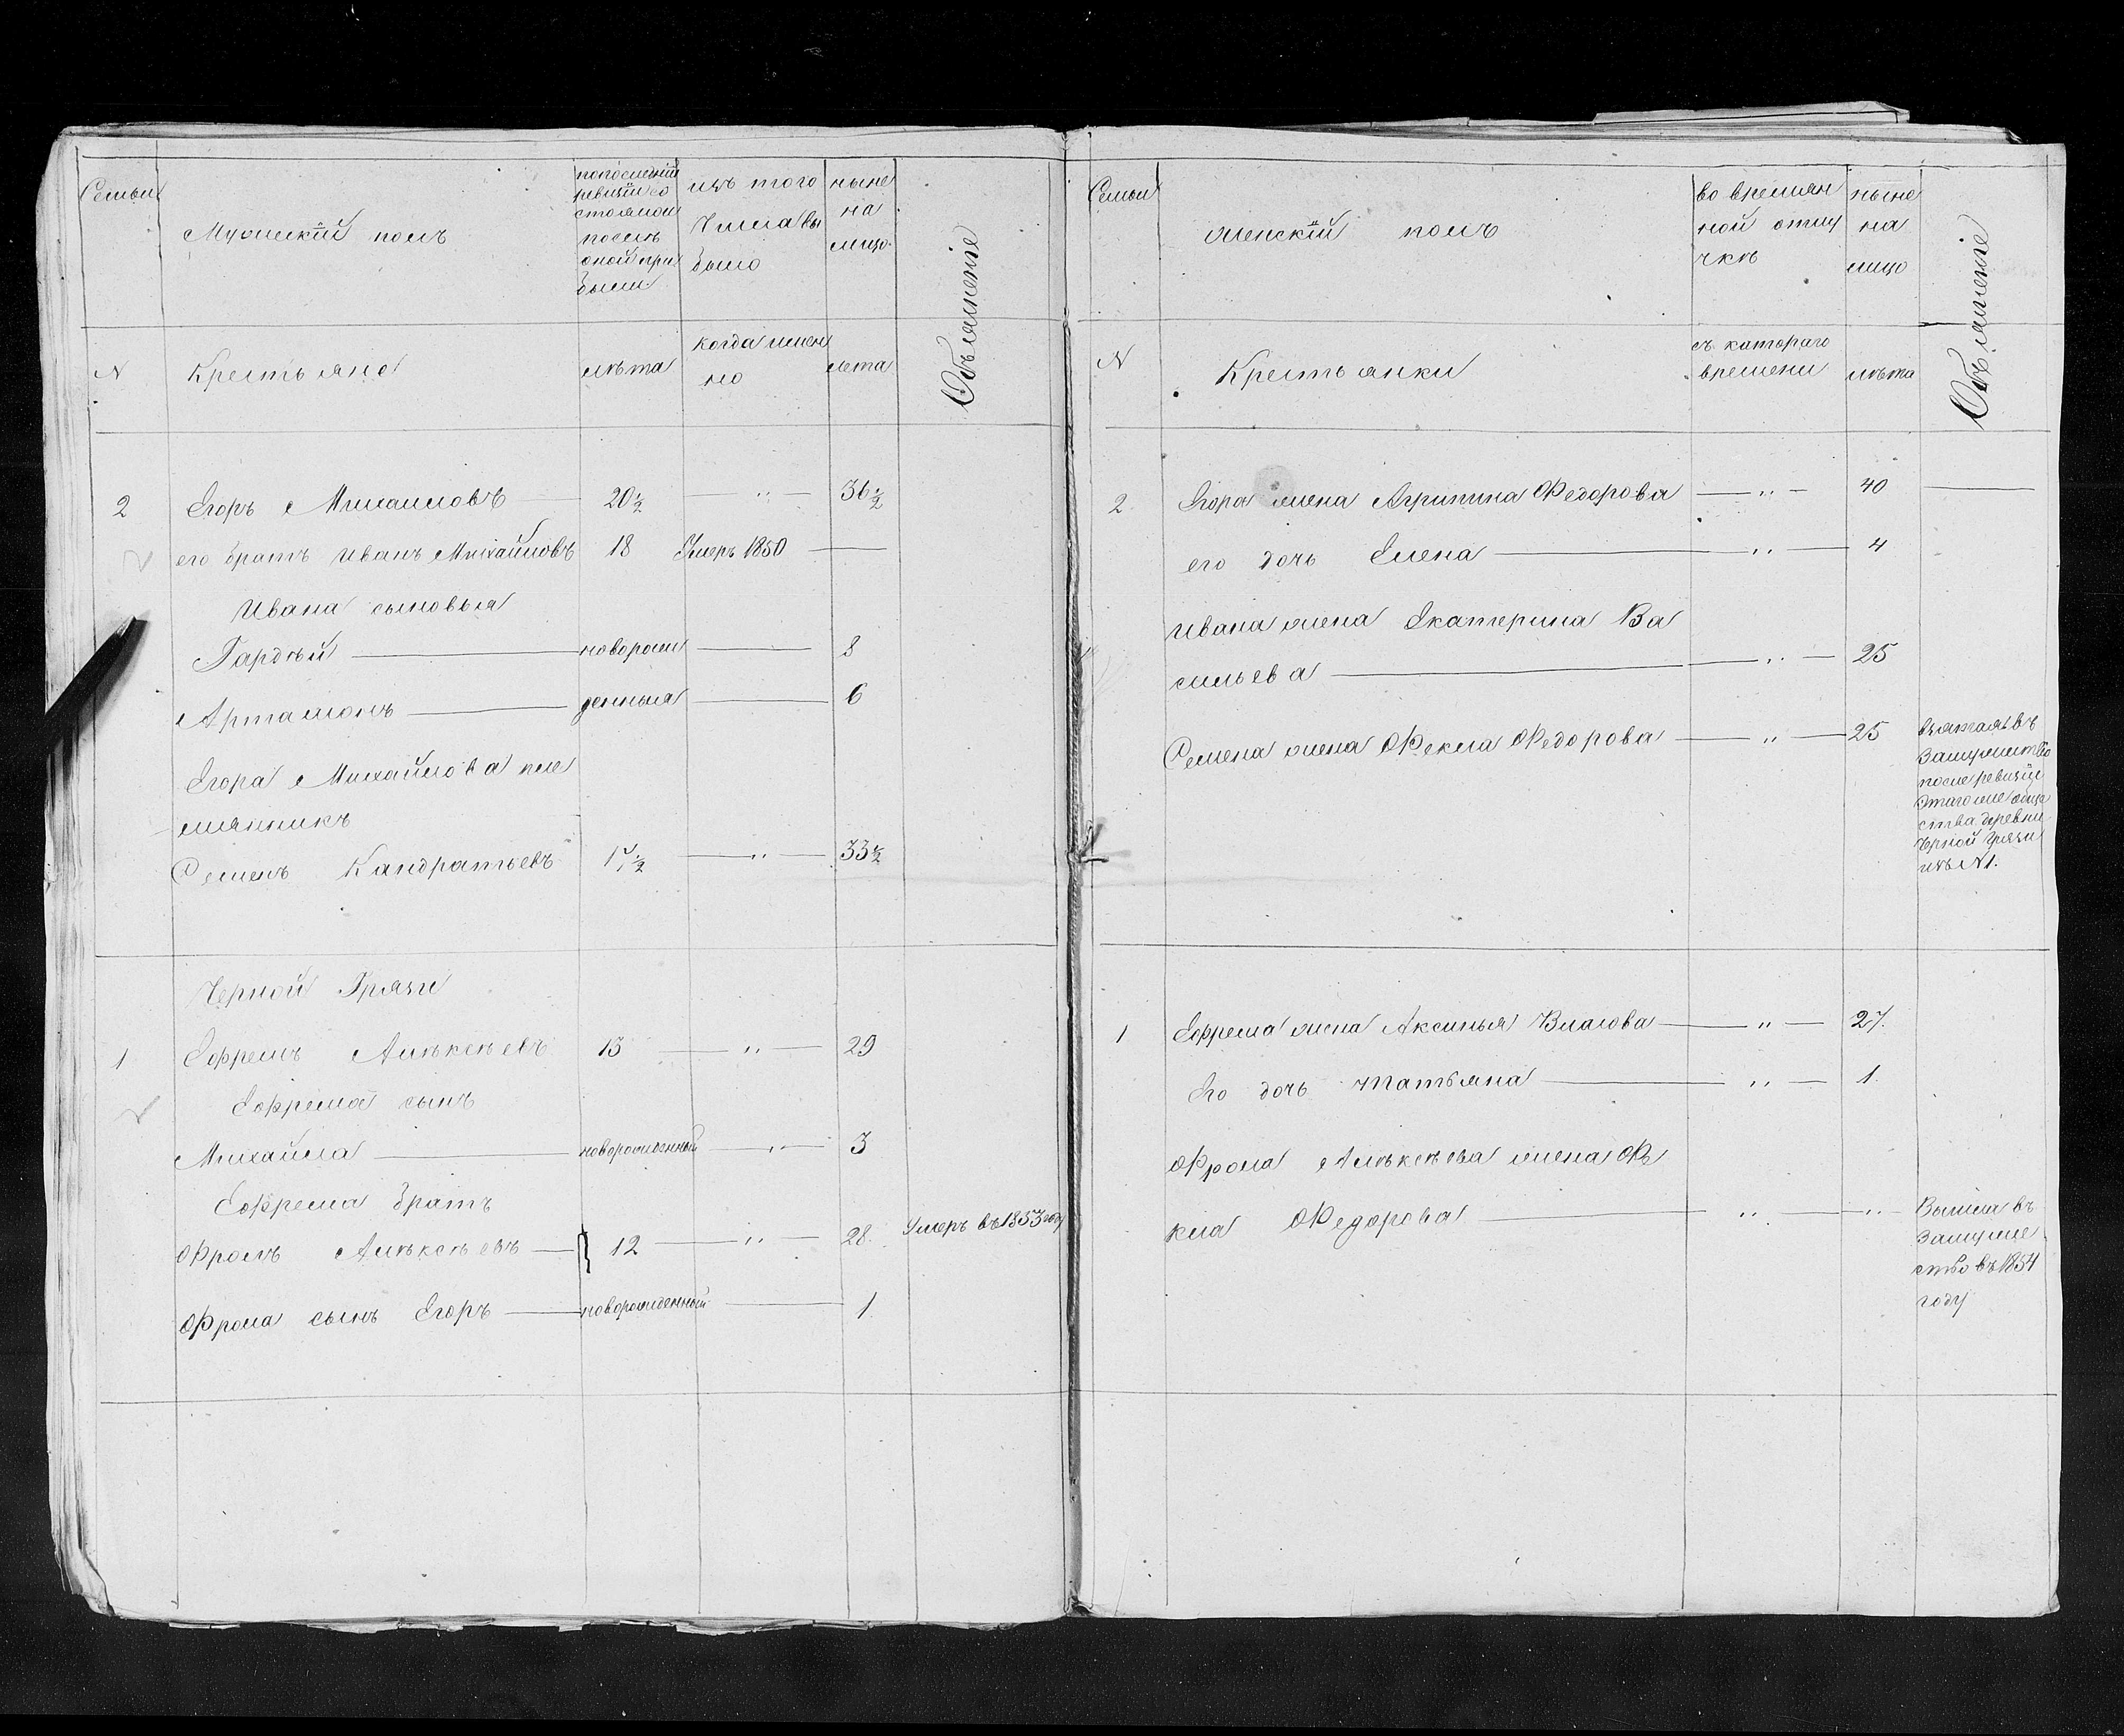 Семьи
Мужескій полъ
попоследнѣй
ревизіи со
стояло и
послѣ
оной при
было
изъ того
числа вы
было
ныне
на
лицо
Объясненіе
N
Крестьяне
лѣта
когда имен
но
лета
2 Егоръ Михаиловъ 20½ " 36½
его братъ Иванъ Михайловъ 18 Умеръ 1850
Ивана сыновья
Гардѣй новорож 8
Артамонъ денныя 6
Егора Михайлова пле
мянникъ
Семенъ Кандратьевъ 17½ " 33½
Черной Грязи
1 Ефремъ Алѣксѣевъ 13 " 29
Ефрема сынъ
Михайла новорожденный " 3
Ефрема братъ
Фролъ Алѣксѣевъ 12 " 28 Умеръ въ 1853 году
Фрола сынъ Егоръ новорожденный 1
Семьи
женскій полъ
во времян
ной отлу
чкѣ
ныне
на
лицо
Объясненіе
N
Крестьянки
съ катораго
времени
лѣта
2 Егора жена Агрипина Федорова " 40
его дочь Елена " 4
Ивана жена Екатерина Ва
сильева " 25
Семена жена Фекла Федорова " 25
взятая въ
Замужество
после ревизіи
Этаго же обще
ства деревни
Черной Грязи
изъ N 1.
1 Ефрема жена Аксинья Власова " 27.
Его дочь Татьяна " 1.
Фрола Алѣксѣева жена Фе
кла Федорова " "
Вышла въ
Замуже
ство въ 1854
году